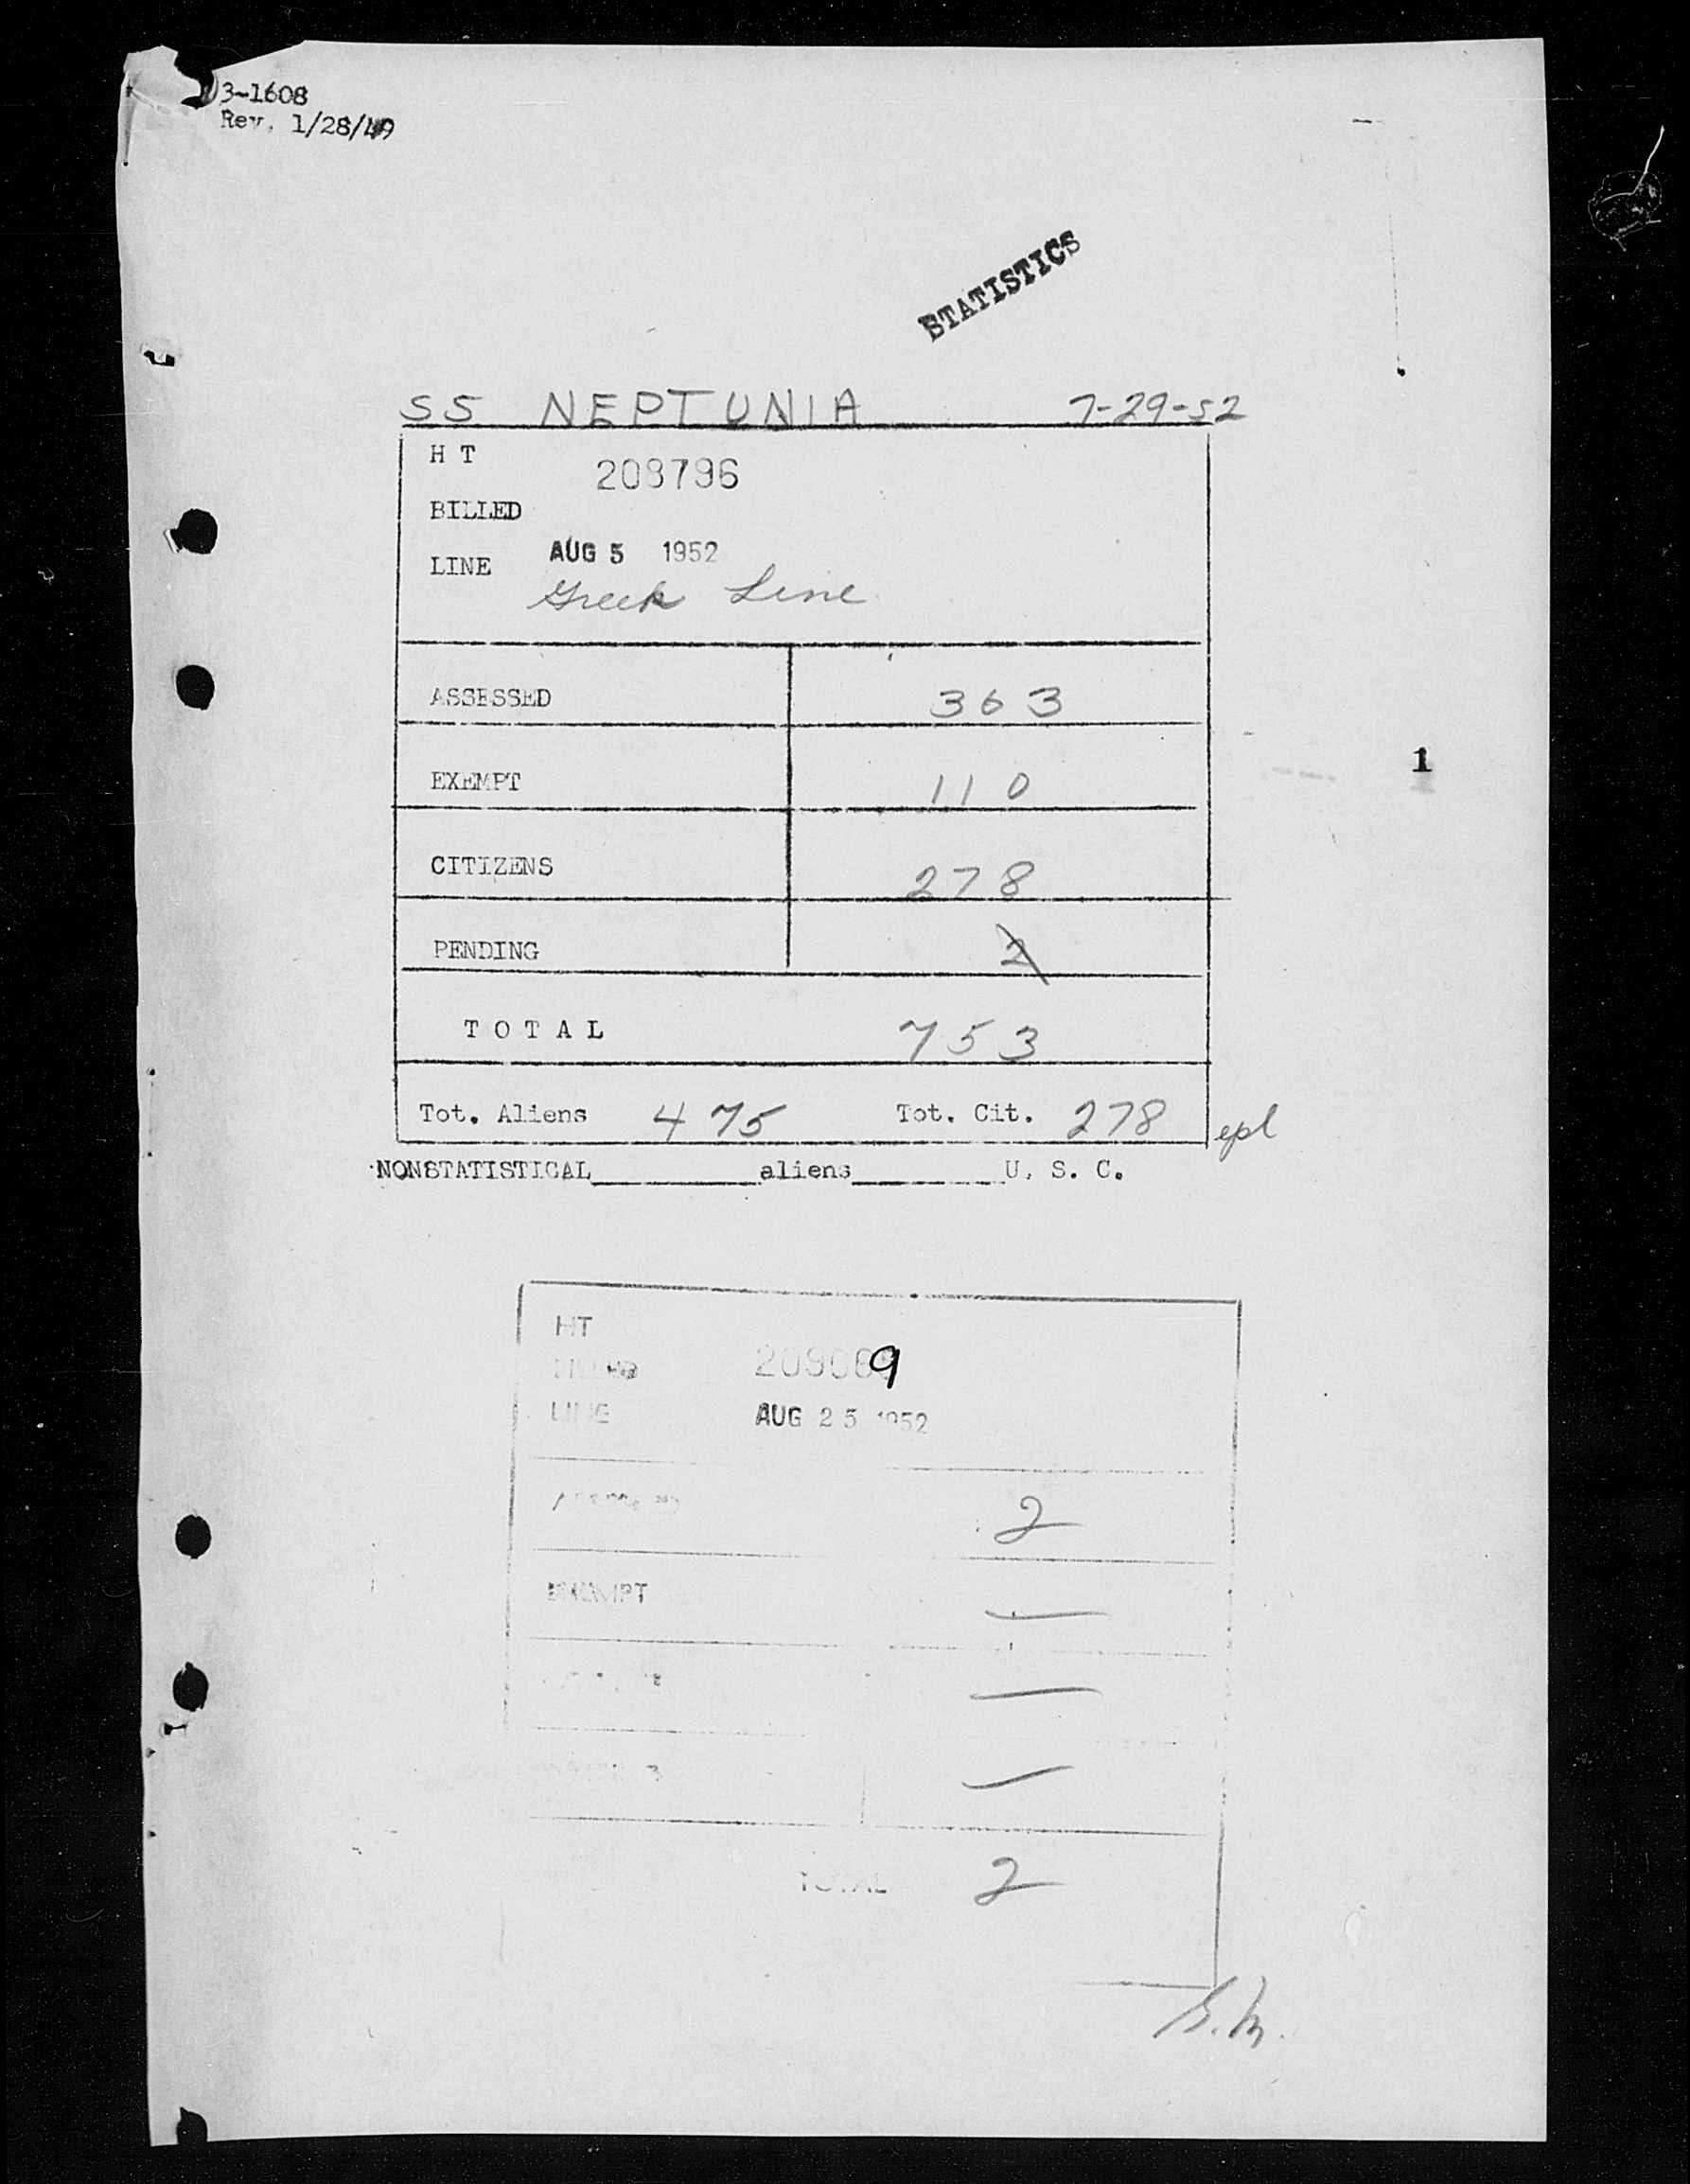 3-1608
Rev. 1/28/49
STATISTICS
SS NEPTUNIA 7-29-52
H T
208796
BILLED
AUG 5 1952
LINE
Greek Line
ASSESSED 363
EXEMPT 110
CITIZENS 278
PENDING 2
TOTAL 753
Tot. Aliens 475 Tot. Cit. 278 epl
NONSTATISTICAL aliens U. S. C.
1
HT
LINE AUG 25 1952
2
EXEMPT —
—
—
TOTAL 2